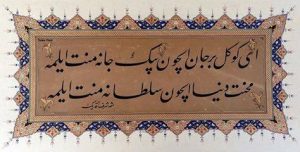 ای کوکل بر جان ایچون هپ جانه منت ایلمه
محنت دنیا ایچون سلطانه منت ایلمه